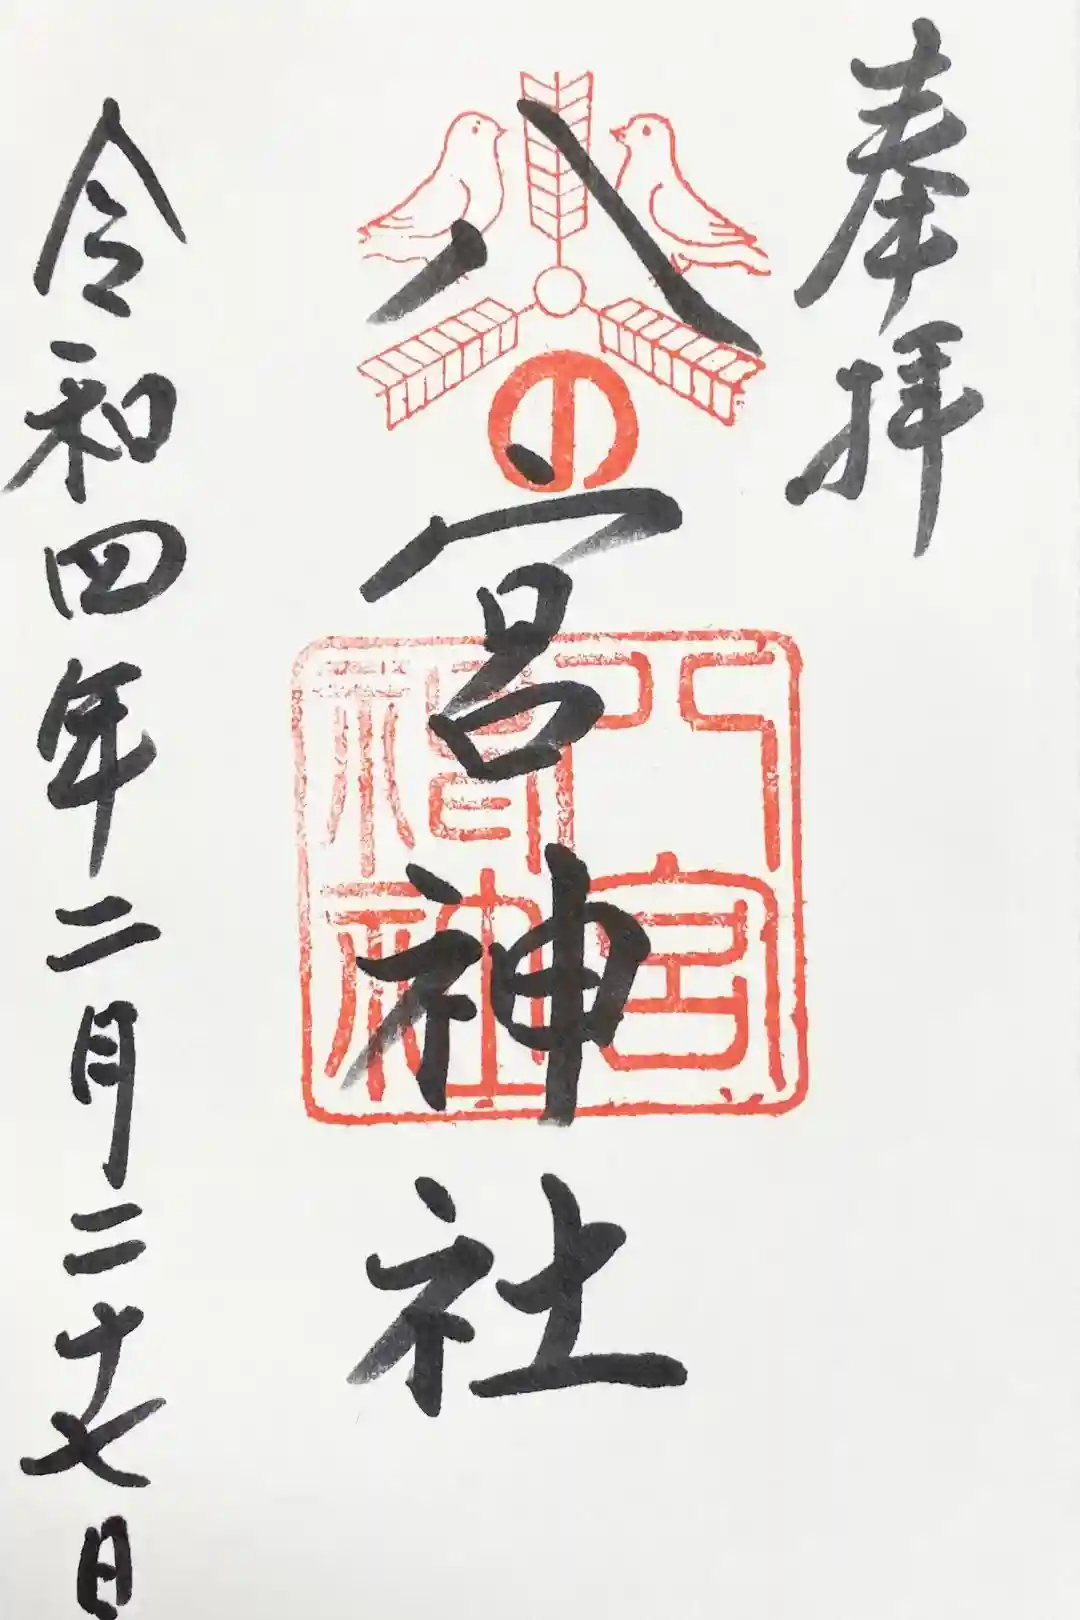 奉拝
八の宮神社
八宮神社
令和四年二月二十七日